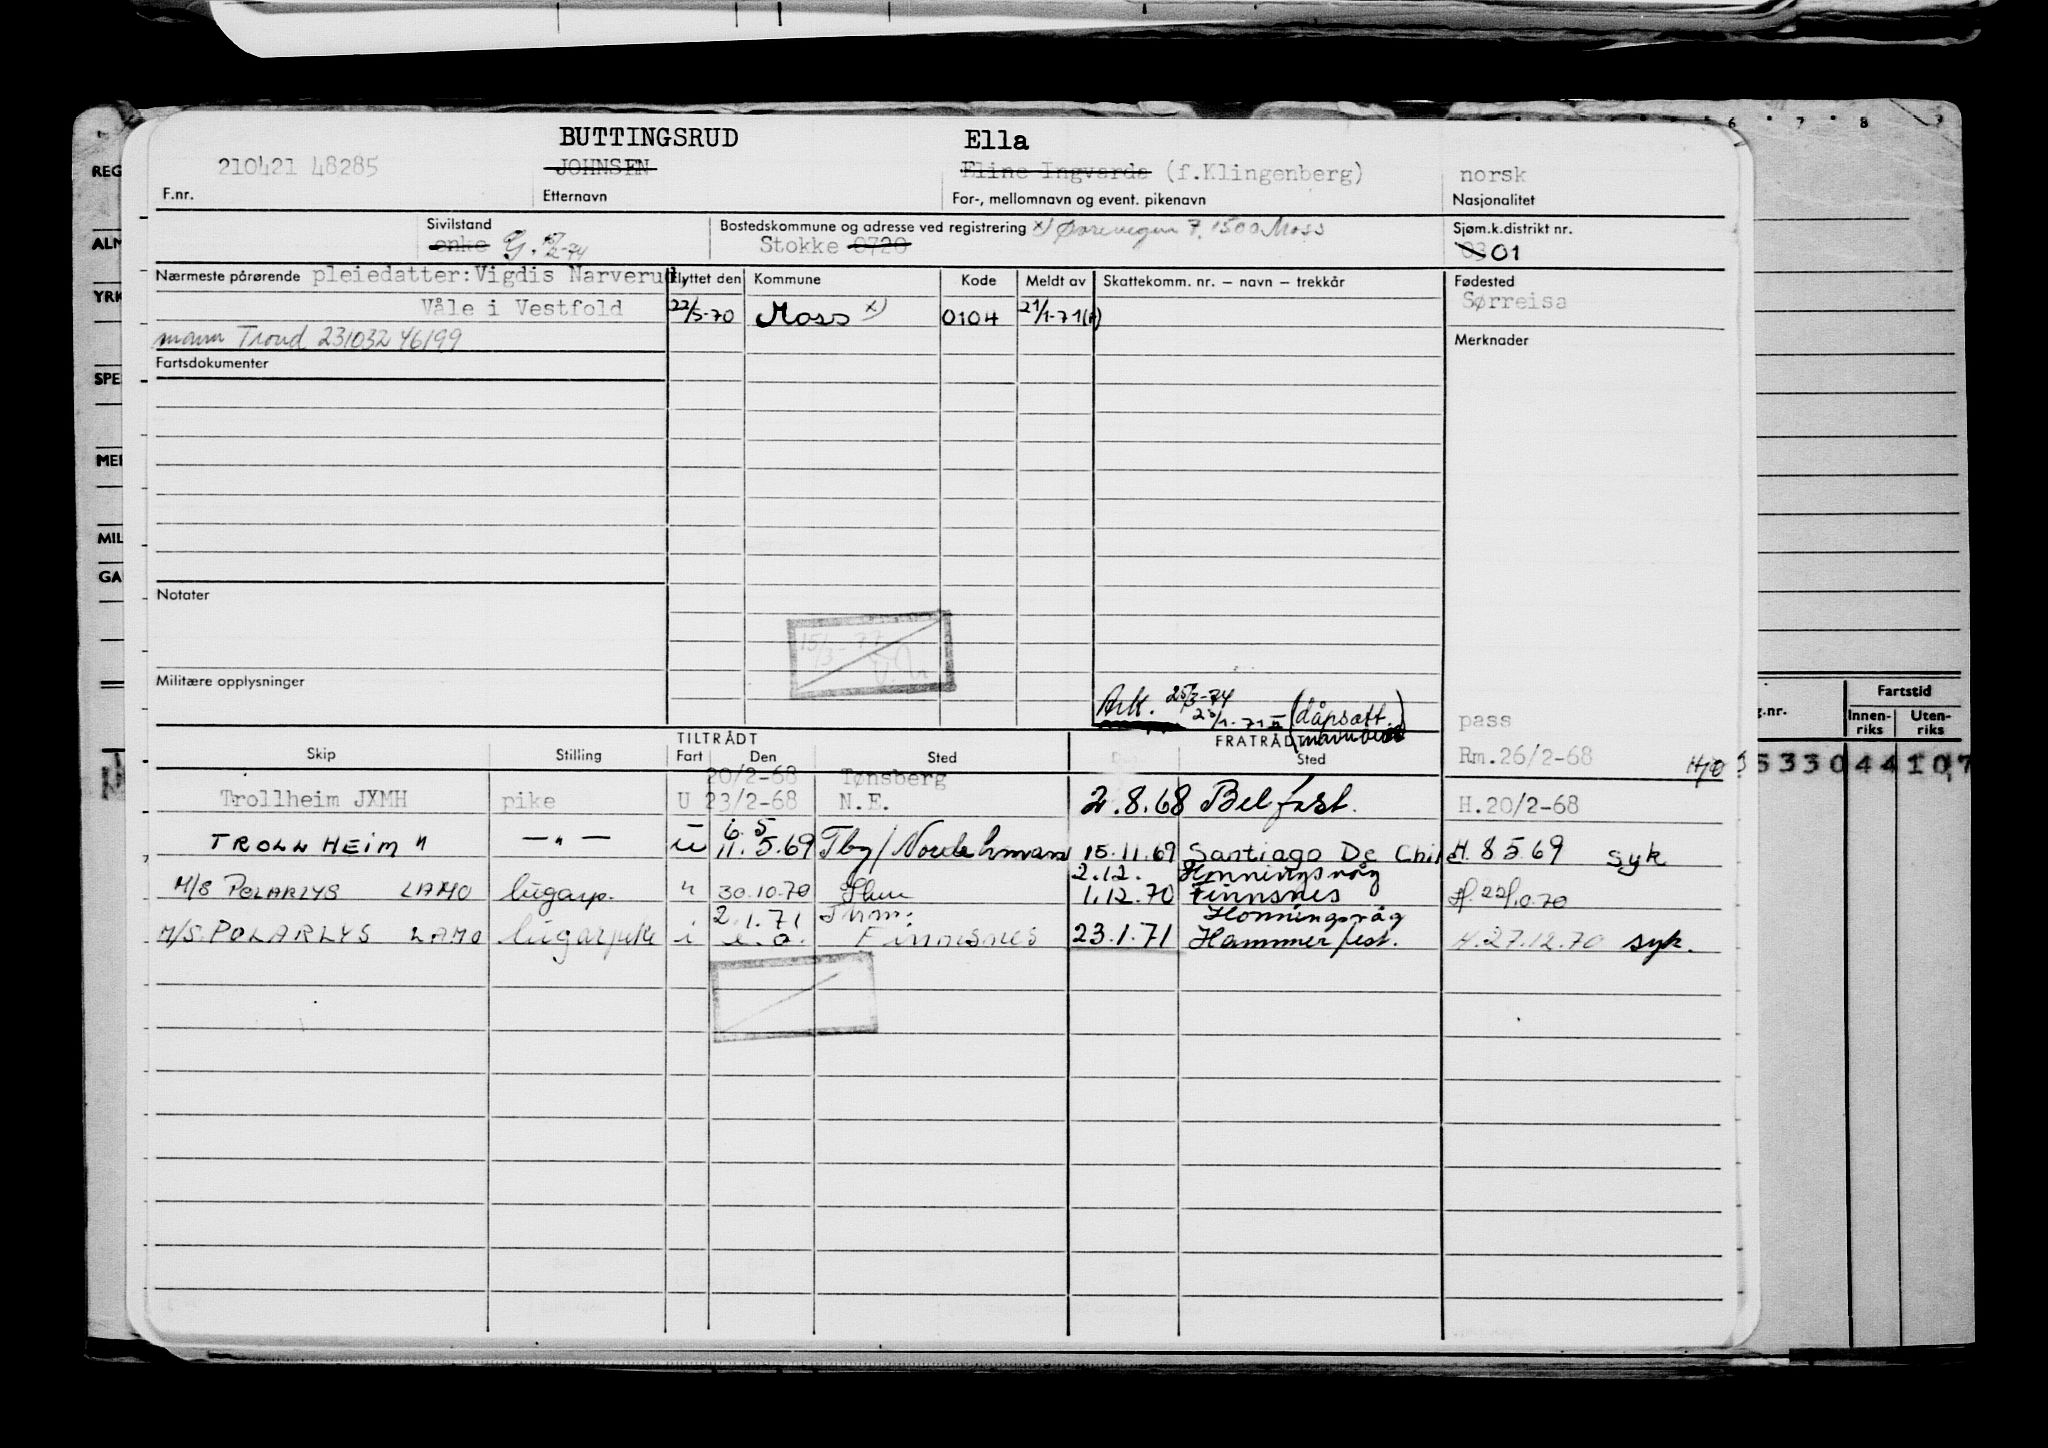 BUTTINGSRUD Ella
210421 48285 JOHNSEN Eline Ingvarda (f.Klingenberg) norsk
F.nr. Etternavn For-, mellomnavn og event. pikenavn Nasjonalitet
Sivilstand Bostedskommune og adresse ved registrering x) 7, 1500 Moss Sjøm.k.distrikt nr.
enke G. -74 Stokke 0720 03 01
Nærmeste pårørende pleiedatter:Vigdis Narverud, Flyttet den Kommune Kode Meldt av Skattekomm. nr. – navn – trekkår Fødested
Våle i Vestfold 22/5-70 Moss x) 0104 21/1-71(A) Sørreisa
mann Trond 231032 46199 Merknader
Fartsdokumenter
Notater
15/3-77
Militære opplysninger
Ark. 25/3-74
25/1-71 (dåpsatt. pass
TILTRÅDT FRATRÅDT
Skip Stilling Fart Den Sted Den Sted Rm.26/2-68 H/O
20/2-68 Tønsberg
Trollheim JXMH pike U 23/2-68 N.E. 2.8.68 Belfast. H.20/2-68
6.5
TROLLHEIM " — " — u 11.5.69 Tbg/Nordenham 15.11.69 Santiago De Chile H.8569 syk
2.12. Honningsvåg
M/S POLARLYS LAMO lugarp. " 30.10.70 1.12.70 Finnsnes H.22/10.70
2.1.71 Trm: Honningsvåg
M/S. POLARLYS LAMO lugarpike i e.o. Finnsnes 23.1.71 Hammerfest. H.27.12.70 syk.
REG
ALM
YRK
SPE
MER
MIL
GA
6 7 8
Fartstid
g.nr. Innen-riks Uten-riks
3 5330 44 10,7